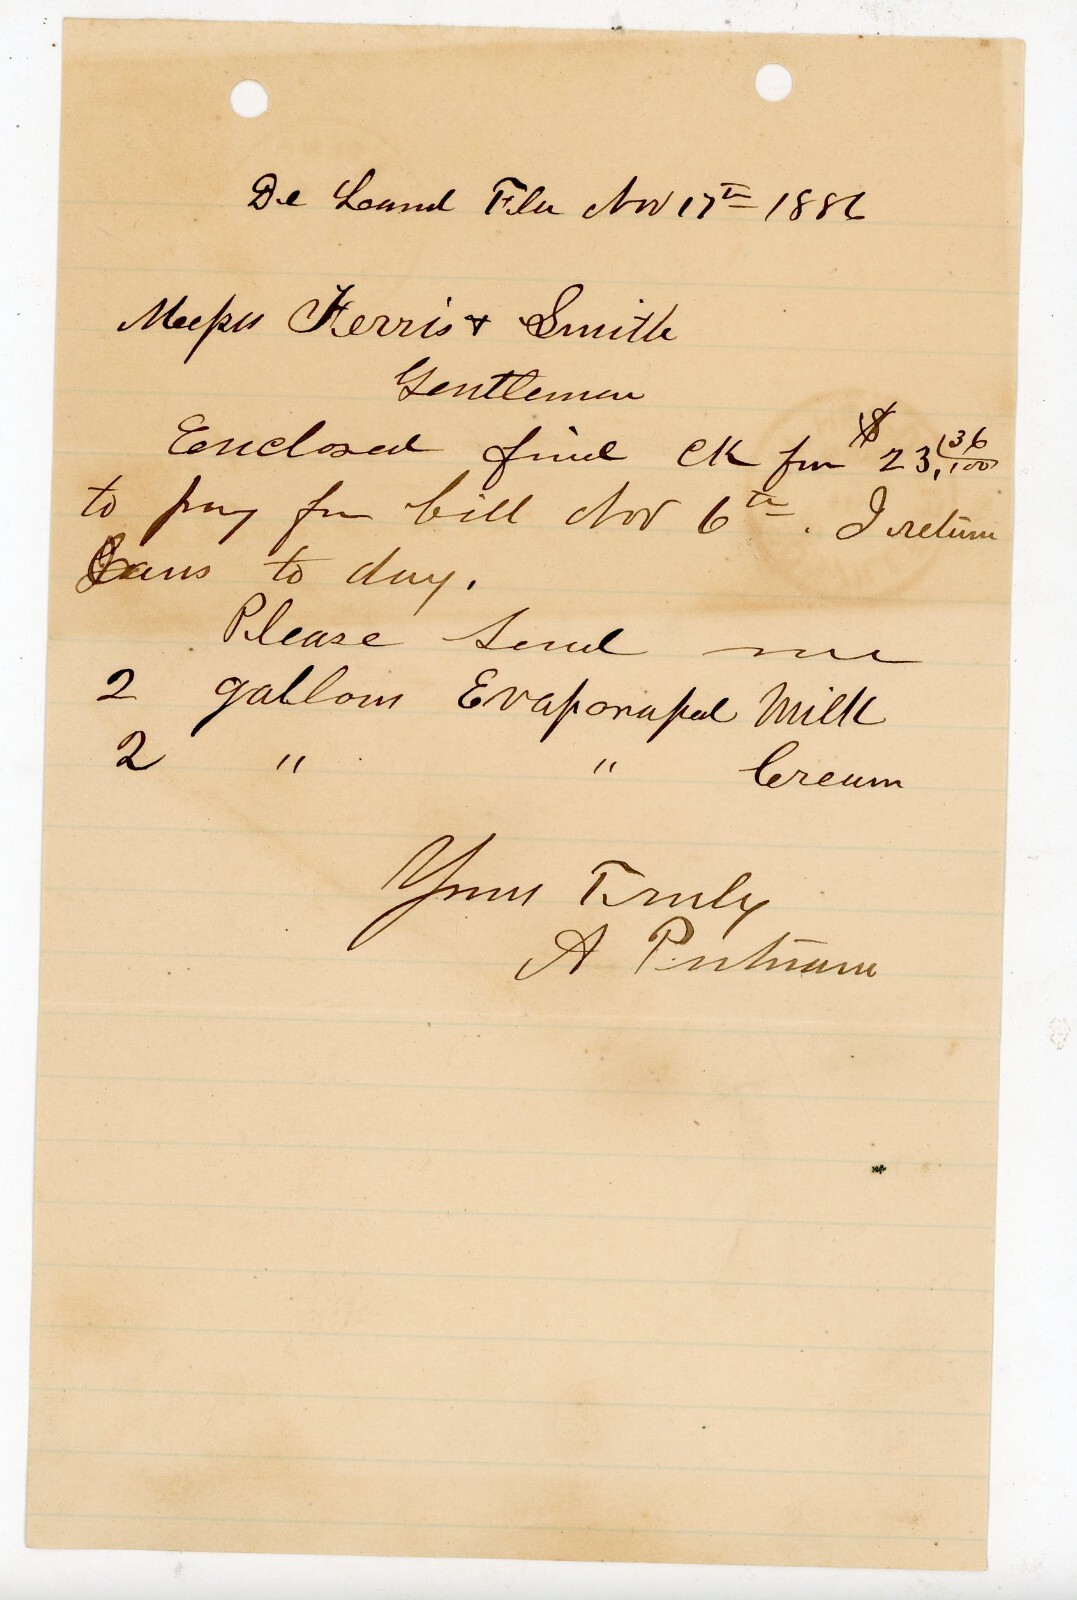 De Land Fla Nov 17th 1886
Messrs Ferris & Smith
Gentlemen
Enclosed find ck for $23,36/100
to pay for bill Nov 6th. I return
Cans to day.
Please send me
2 gallons Evaporated Milk
2 " " Cream
Yours Truly
A Putnam